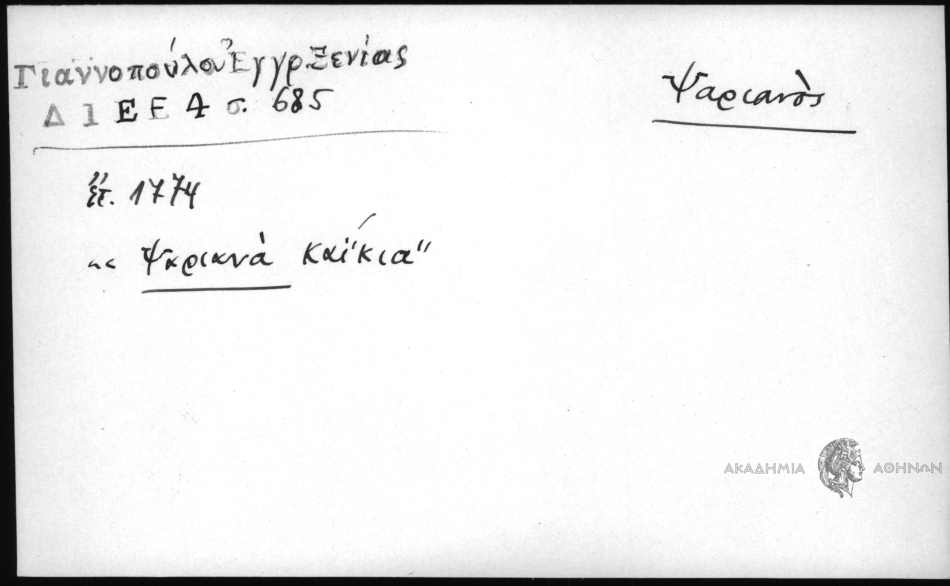 Γιαννοπούλου Ἐγγρ Ξενίας
Δ Ι Ε Ε 4 σ. 685
Ψαριανὸς
ἔτ. 1774
"Ψαριανὰ καΐκια"
ΑΚΑΔΗΜΙΑ ΑΘΗΝΩΝ